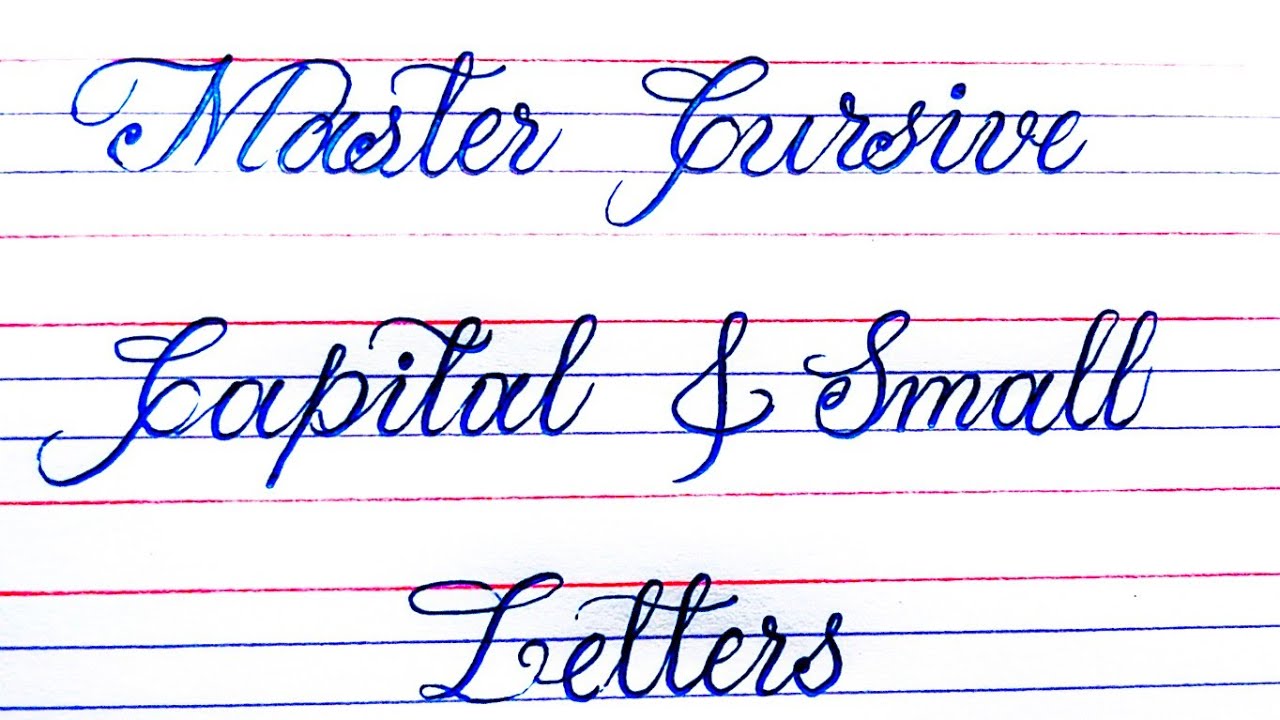 Master Cursive
Capital & Small
Letters